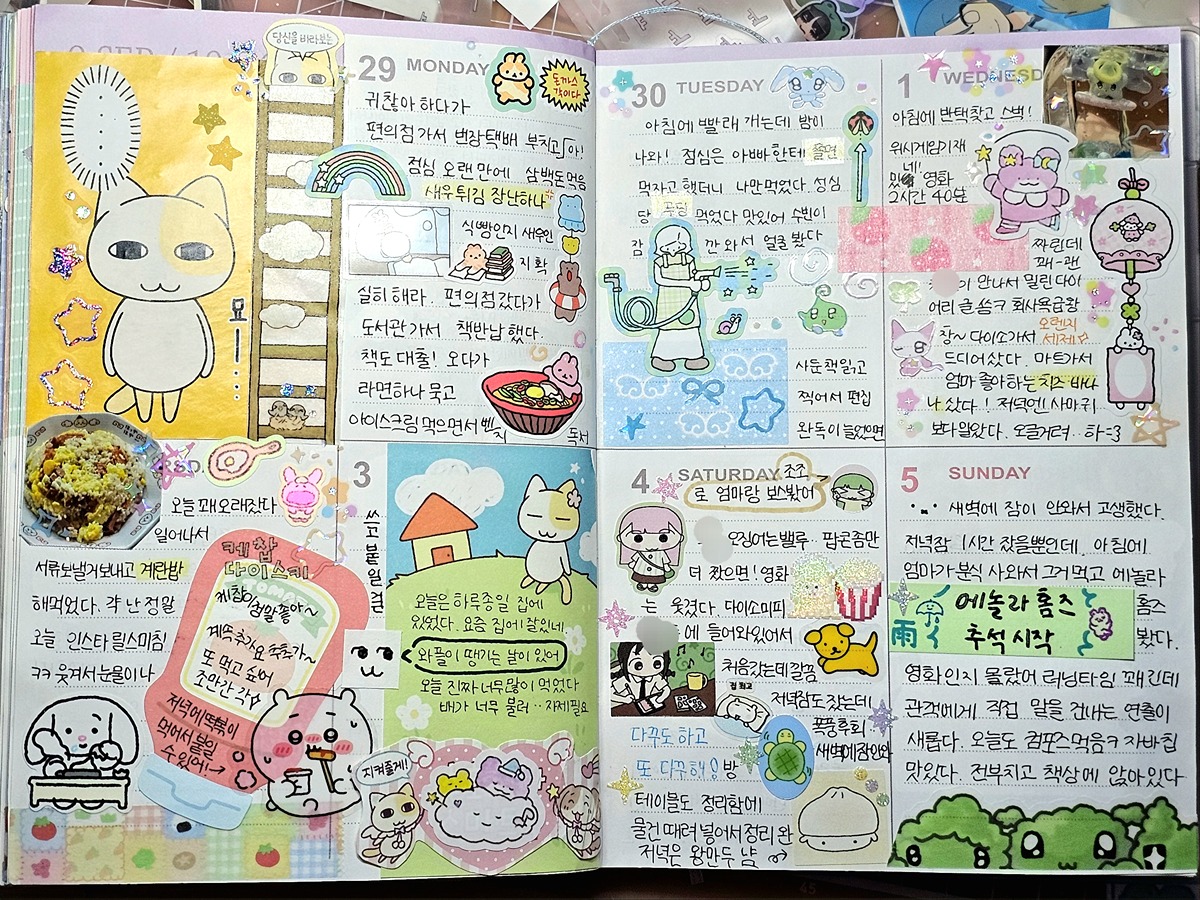 당신을 바라보는
묘
29 MONDAY
돈까스
각이다
귀찮아 하다가
편의점 가서 변장택배 부치고 아!
점심 오랜만에 삼백도먹음
새우튀김 장난하나
식빵인지 새우인
지 확
실히 해라. 편의점 갔다가
도서관 가서 책반납 했다.
책도 대출! 오다가
라면하나 묵고
아이스크림 먹으면서 벤
치
독서
30 TUESDAY
아침에 빨래 개는데 밤이
나와! 점심은 아빠한테 쫄면
먹자고 했더니 나만 먹었다. 성심
당 푸딩 먹었다 맛있어 수빈이
잠 깐 와서 얼굴 봤다
사둔 책 읽고
찍어서 편집
완독이 늘었으면
1 WEDNESD
아침에 반택찾고 스벅!
네!
영화
2시간 40분
짜린데
꽤-괜
안나서 밀린 다이
어리 글 씀ㅋ 회사욕 급황
창~ 다이소가서 오렌지
세제☆
드디어 샀다. 마트가서
엄마 좋아하는 치즈 바나
나 샀다! 저녁엔 사마귀
보다 말았다. 오글거려.. 하=3
SD
오늘 꽤 오래잤다
일어나서
서류보낼거 보내고 계란밥
해먹었다. 걱 난 정말
오늘 인스타 릴스 미침
ㅋㅋ 웃겨서 눈물이 나
케찹
다이스키
TOMATO
케찹이 정말 좋아~
계뚝추가요 쭉쭉가~
또 먹고 싶어
조만간 각☆
저녁에 떡볶이
먹어서 붙일
수 있어!→
3
쓰고 붙일 건
오늘은 하루종일 집에
있었다. 요즘 집에 잘있네
와플이 땡기는 날이 있어
오늘 진짜 너무 많이 먹었다
배가 너무 불러.. 자제필요
지켜줄게!
4 SATURDAY
조조
로 엄마랑 보스봤어
오징어는 별루. 팝콘 좀만
더 짰으면! 영화
는 웃겼다. 다이소 미피
에 들어와있어서
처음 갔는데 깔끔
점 최고
저녁잠도 잤는데
폭풍후회
새벽에 잠 안와
다꾸도 하고
또 다꾸해! 방
테이블도 정리함에
물건 때려 넣어서 정리 완
저녁은 왕만두 냠
5 SUNDAY
새벽에 잠이 안와서 고생했다.
저녁잠 1시간 잤을뿐인데. 아침에
엄마가 분식 사와서 그거 먹고 에놀라
에놀라 홈즈
추석 시작
雨
홈즈
봤다.
영화인지 몰랐어 러닝타임 꽤 긴데
관객에게 직접 말을 건네는 연출이
새롭다. 오늘도 컴포즈먹음ㅋ 자바칩
맛있다. 전부치고 책상에 앉아있다